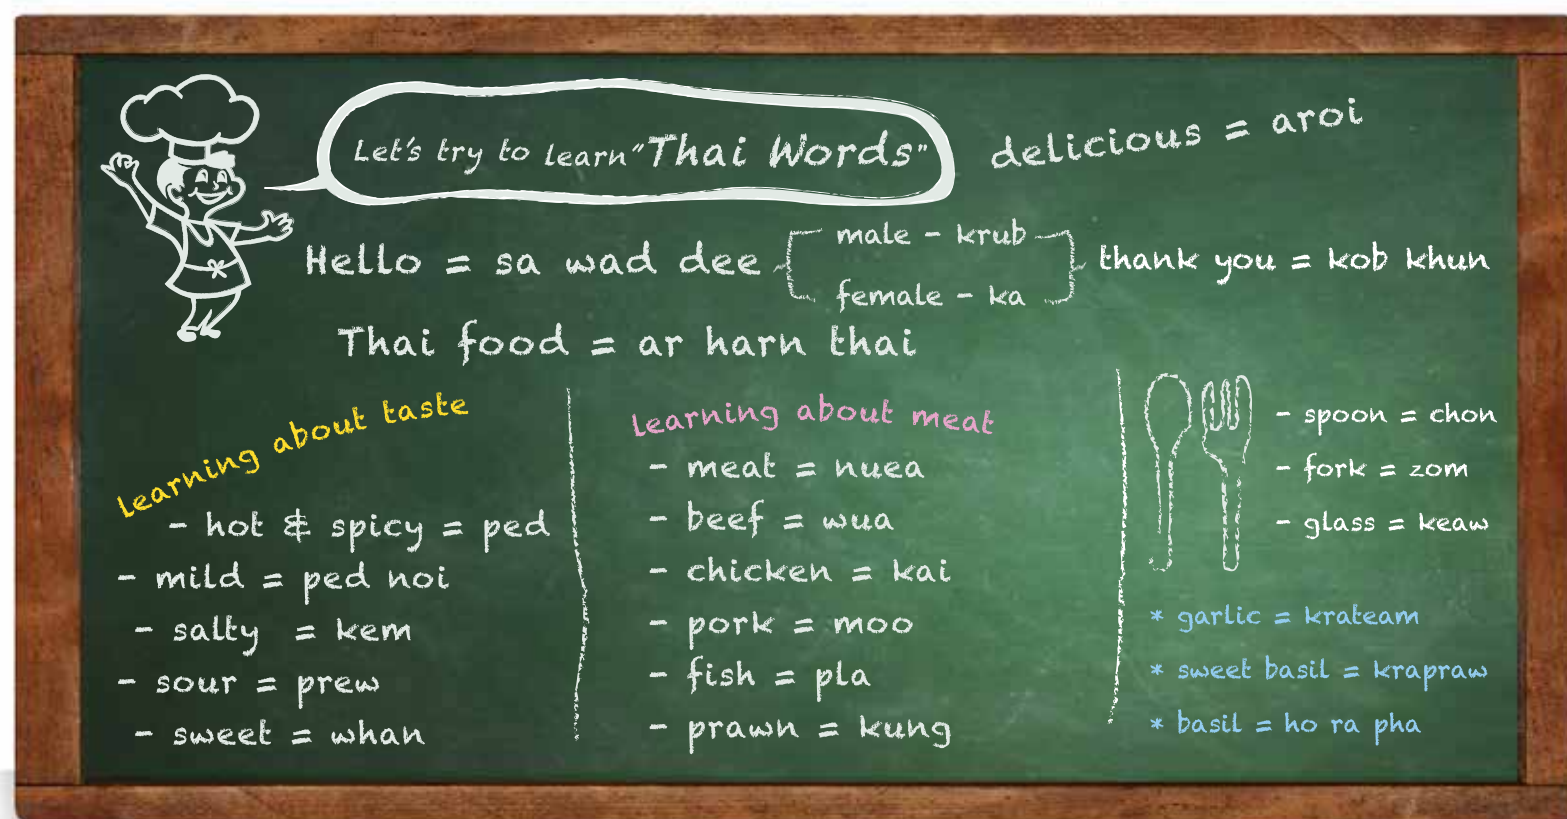 Let's try to learn "Thai Words"
delicious = aroi
Hello = sa wad dee
male - krub
female - ka
thank you = kob khun
Thai food = ar harn thai
learning about taste
- hot & spicy = ped
- mild = ped noi
- salty = kem
- sour = prew
- sweet = whan
learning about meat
- meat = nuea
- beef = wua
- chicken = kai
- pork = moo
- fish = pla
- prawn = kung
- spoon = chon
- fork = zom
- glass = keaw
* garlic = krateam
* sweet basil = krapraw
* basil = ho ra pha